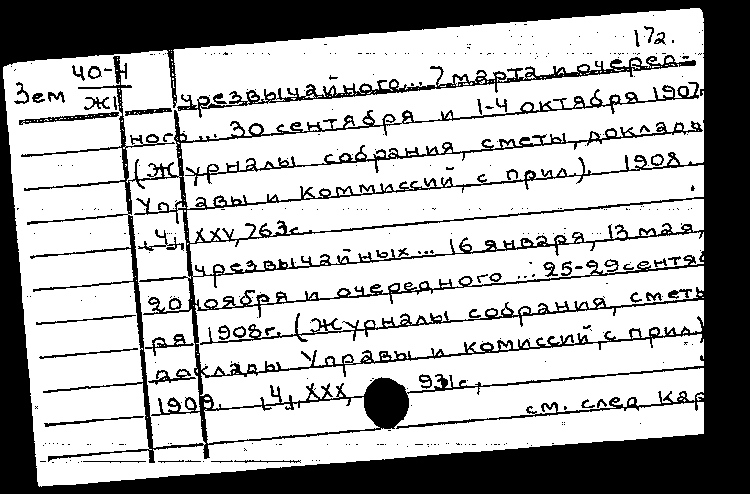 17г.
Зем 40-4
Ж1
чрезвычайного... 7 марта и очеред-
ного ... 30 сентября и 1-4 октября 1907.
(Журналы собрания, сметы, доклады
Управы и Коммиссий, с прил.). 1908.
[4], XXV, 763с.
чрезвычайных... 16 января, 13 мая,
20 ноября и очередного ... 25-29 сентяб
ря 1908г. (Журналы собрания, сметы
доклады Управы и комиссий, с прил.)
1909. [4], XXX, 931с.,
см. след кар